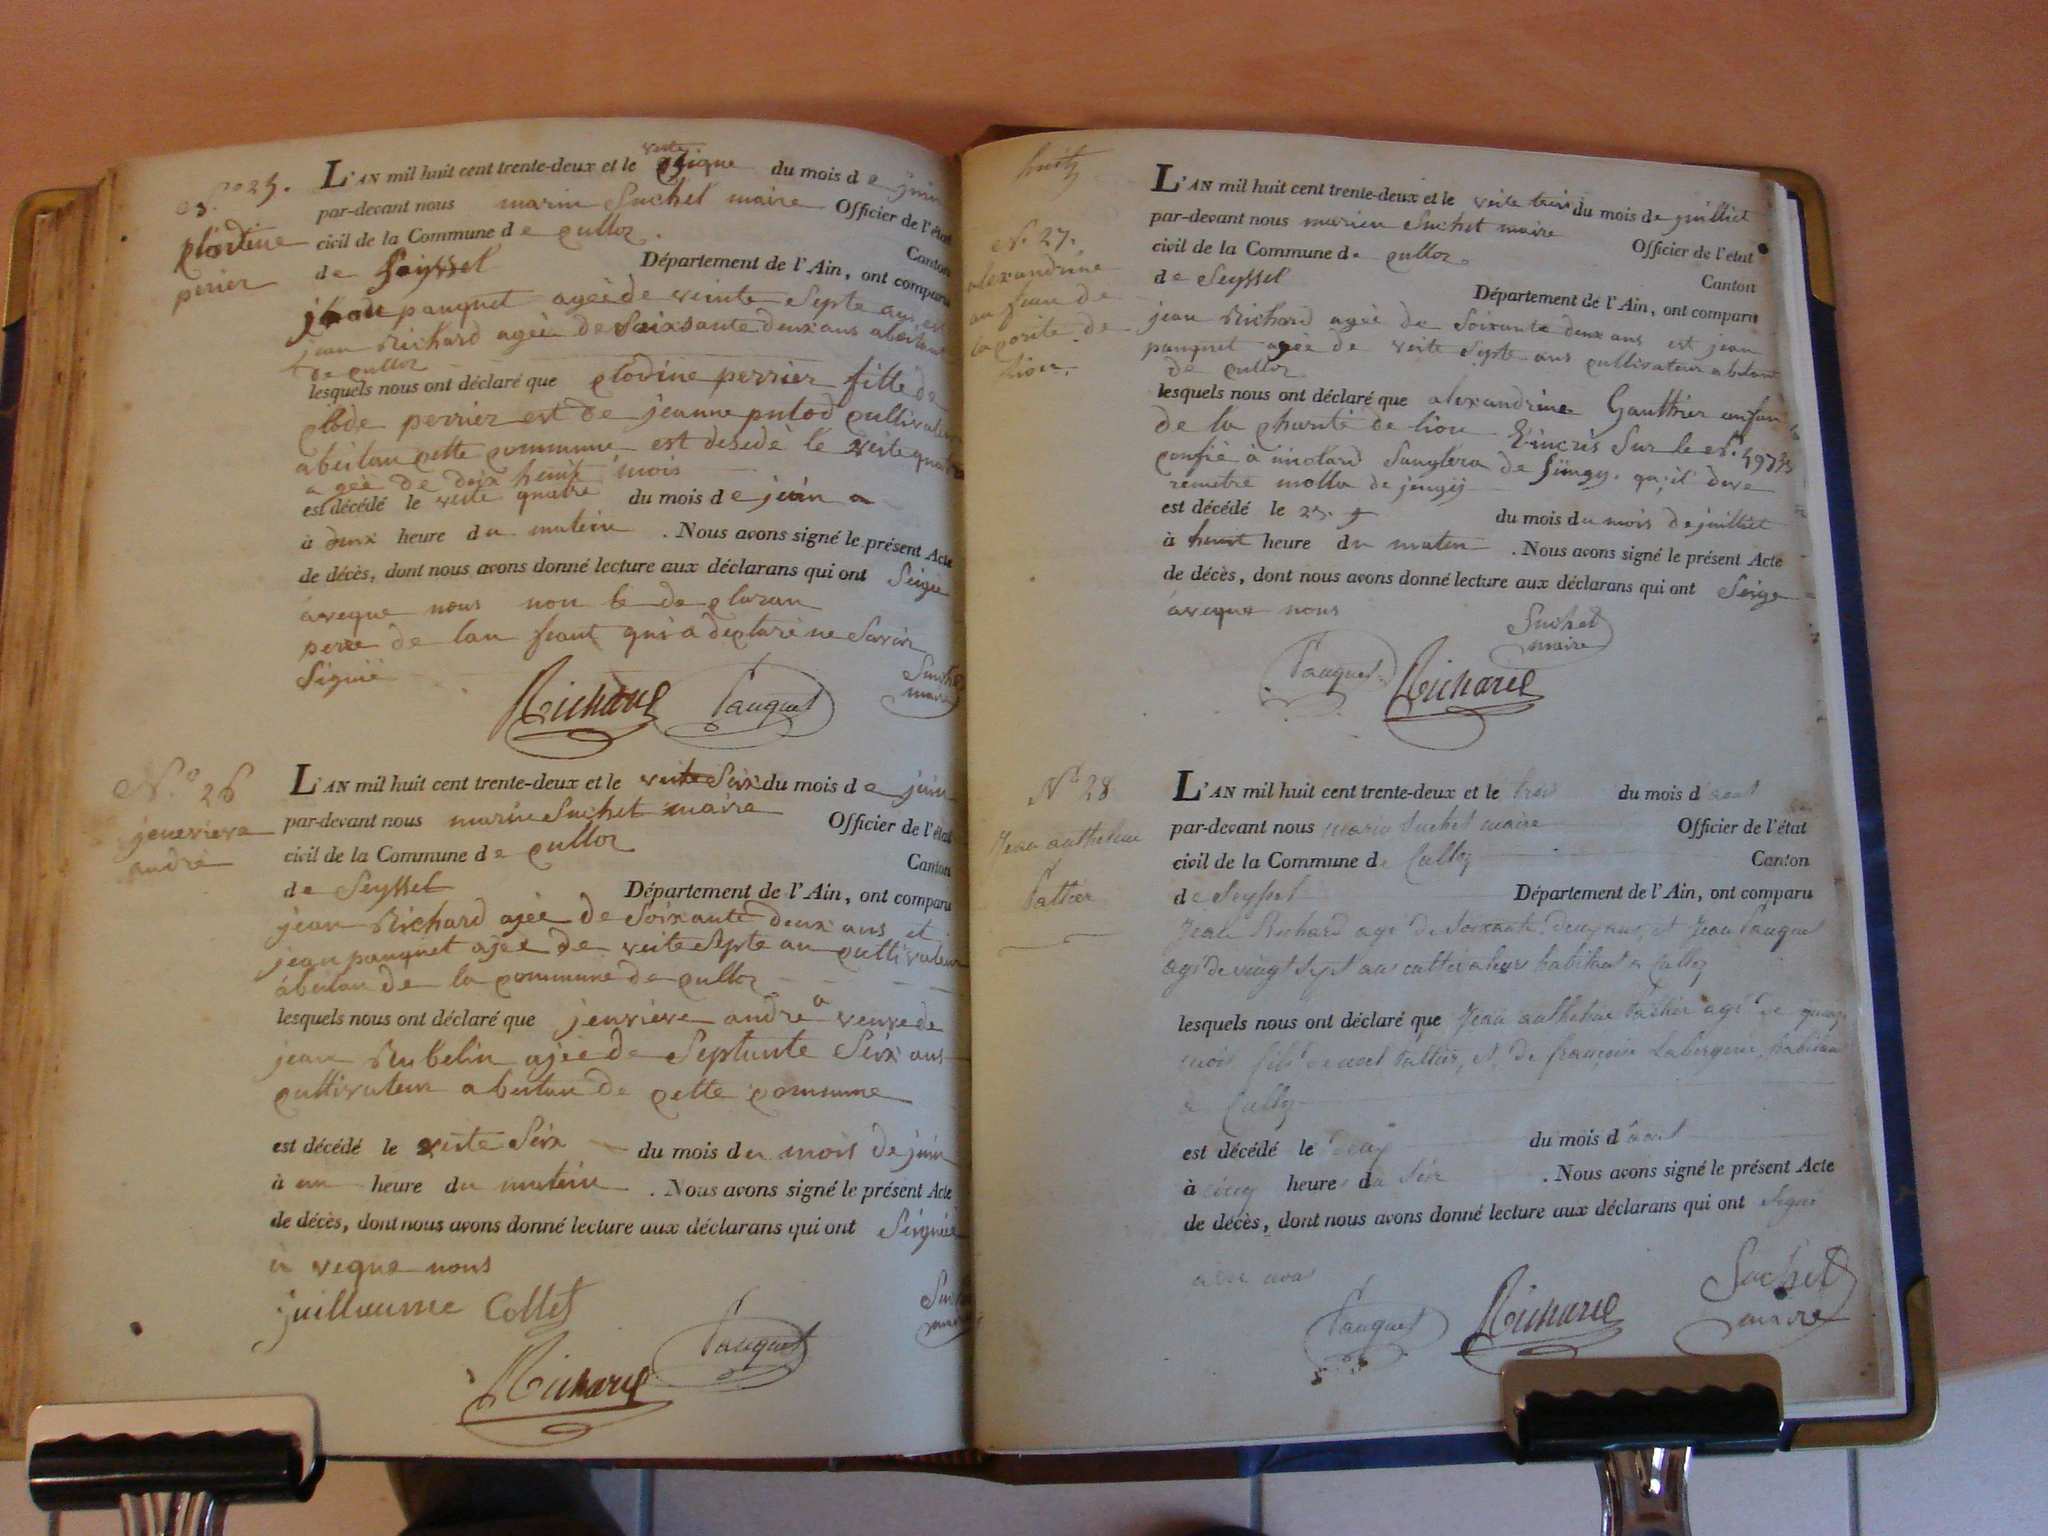 N.º 25.
plodine
perier
L'AN mil huit cent trente-deux et le veite sinque du mois de juin
par-devant nous marin Suchet maire Officier de l'état
civil de la Commune de culloz. Canton
de Seyssel Département de l'Ain, ont comparu
jean pauquet ageè de veinte Septe ans est
jean Richard ageè de Soixsante deux ans abeitant
de culloz
lesquels nous ont déclaré que plodine perrier fille de
plode perrier est de jeanne putod cultivateur
abeitan cette commune est desedè le veite quatre
ageè de deix heuit mois
est décédé le veite quatre du mois de juin
à deux heure du matein . Nous avons signé le présent Acte
de décès, dont nous avons donné lecture aux déclarans qui ont Seigne
aveque nous non le de claran
pere de lan feant qui a declarè ne Savoir
Signiè
Richard Pauquet Suchet
maire
N.º 26
jenevieve
andrè
L'AN mil huit cent trente-deux et le veite Seix du mois de juin
par-devant nous marin Suchet maire Officier de l'état
civil de la Commune de culloz Canton
de Seyssel Département de l'Ain, ont comparu
jean Richard ageè de Soixante deux ans et
jean pauquet ageè de veite Septe an cultivateur
abeitan de la commune de culloz
lesquels nous ont déclaré que jenvieve andrè a veuve de
jean Rubelin ageè de Septante Seix ans
cultivateur abeitan de cette commune
est décédé le veite Seix du mois du mois de juin
à un heure du matein . Nous avons signé le présent Acte
de décès, dont nous avons donné lecture aux déclarans qui ont Seigniè
a veque nous
guillaume Collet
Richard Pauquet Suchet
maire
huit
N.º 27.
alexandrine
an fean de
la porite de
lion.
L'AN mil huit cent trente-deux et le veite trois du mois de juilliet
par-devant nous marien Suchet maire Officier de l'état
civil de la Commune de culloz. Canton
de Seyssel Département de l'Ain, ont comparu
jean Richard ageè de Soixante deux ans est jean
pauquet ageè de veite Septe ans cultivateur abitant
de culloz
lesquels nous ont déclaré que alexandrine Gauttier anfan
de la charité de lion incris Sur le nº.
confiè à de qu'il
remetre molla de
est décédé le 23 du mois du mois de juilliet
à heuit heure du maten . Nous avons signé le présent Acte
de décès, dont nous avons donné lecture aux déclarans qui ont Seigne
aveque nous
Suchet
maire
Pauquet Richard
Nº 28
Jean anthelme
Pattier
L'AN mil huit cent trente-deux et le trois du mois d'aout
par-devant nous marin Suchet maire Officier de l'état
civil de la Commune de Culloz Canton
de Seyssel Département de l'Ain, ont comparu
Jean Richard agé de soixante deux ans, et Jean Pauquet
agé de vingt sept ans cultivateurs habitant a Culloz
lesquels nous ont déclaré que Jean anthelme Pattier agé de quinze
mois fils de noel Pattier, et de françoise Labergerie, habitant
a Culloz
est décédé le deux du mois d'aout
à cinq heures du Soir . Nous avons signé le présent Acte
de décès, dont nous avons donné lecture aux déclarans qui ont Signé
avec nous
Pauquet Richard Suchet
maire